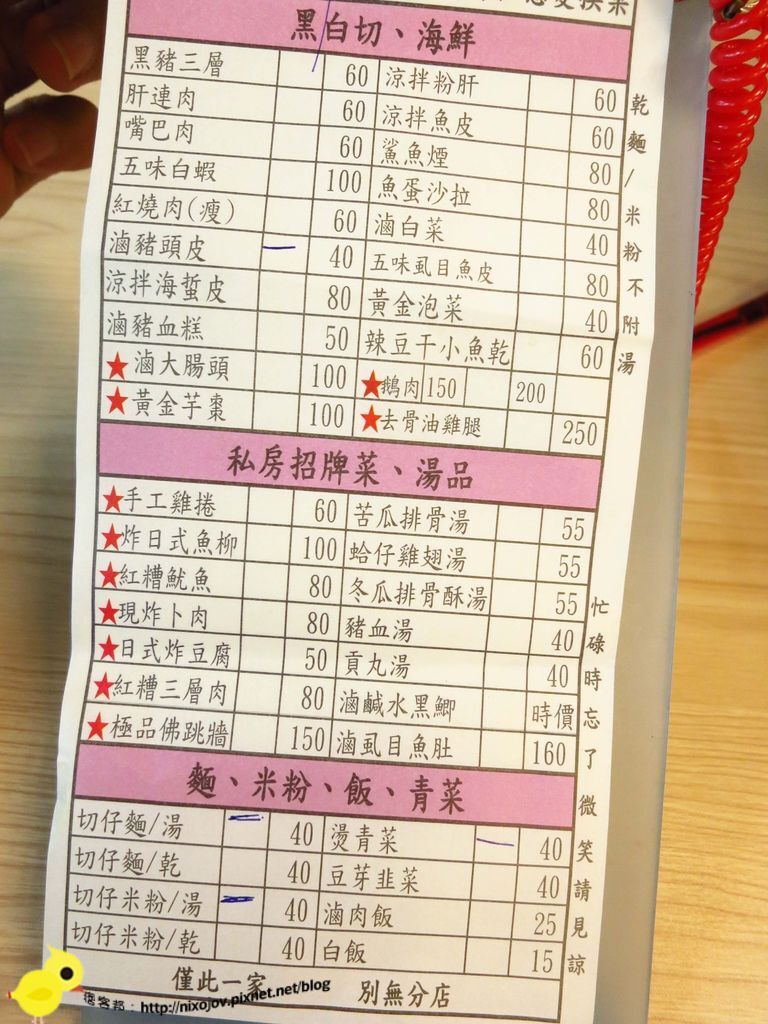 黑白切、海鮮
黑豬三層 60 涼拌粉肝 60
肝連肉 60 涼拌魚皮 60
嘴巴肉 60 鯊魚煙 80
五味白蝦 100 魚蛋沙拉 80
紅燒肉(瘦) 60 滷白菜 40
滷豬頭皮 40 五味虱目魚皮 80
涼拌海蜇皮 80 黃金泡菜 40
滷豬血糕 50 辣豆干小魚乾 60
★滷大腸頭 100 ★鵝肉 150 200
★黃金芋棗 100 ★去骨油雞腿 250
私房招牌菜、湯品
★手工雞捲 60 苦瓜排骨湯 55
★炸日式魚柳 100 蛤仔雞翅湯 55
★紅糟魷魚 80 冬瓜排骨酥湯 55
★現炸卜肉 80 豬血湯 40
★日式炸豆腐 50 貢丸湯 40
★紅糟三層肉 80 滷鹹水黑鯽 時價
★極品佛跳牆 150 滷虱目魚肚 160
麵、米粉、飯、青菜
切仔麵/湯 40 燙青菜 40
切仔麵/乾 40 豆芽韭菜 40
切仔米粉/湯 40 滷肉飯 25
切仔米粉/乾 40 白飯 15
僅此一家 別無分店
乾麵/米粉不附湯
忙碌時忘了微笑請見諒
痞客邦:http://nixojov.pixnet.net/blog